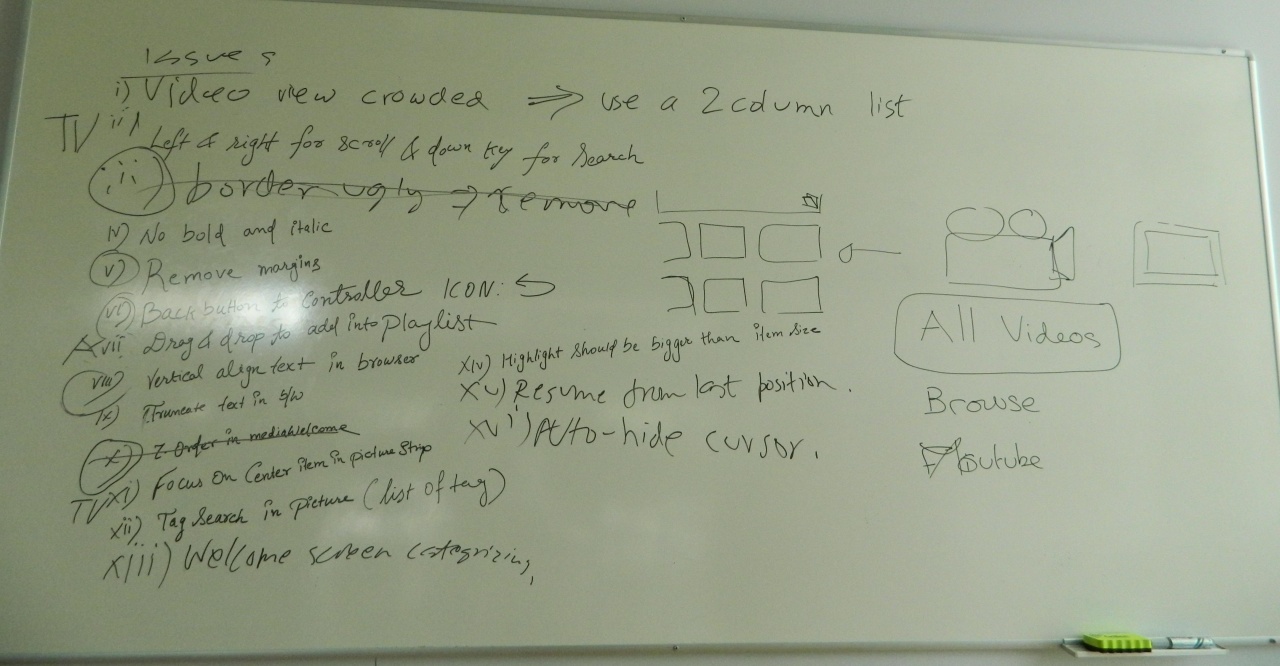 Issues
i) Video view crowded ⇒ use a 2 column list
TV ii) Left & right for scroll & down key for search
iii) border ugly → remove
iv) No bold and italic
v) Remove margins
vi) Back button to controller ICON:
vii Drag & drop to add into playlist
viii) Vertical align text in browser
ix) Truncate text in
x) Z-Order in mediawelcome
TV xi) Focus on Center item in picture strip
xii) Tag search in picture (list of tag)
xiii) Welcome screen categrizing,
xiv) Highlight should be bigger than item size
xv) Resume from last position.
xvi) Auto-hide cursor.
All Videos
Browse
Youtube